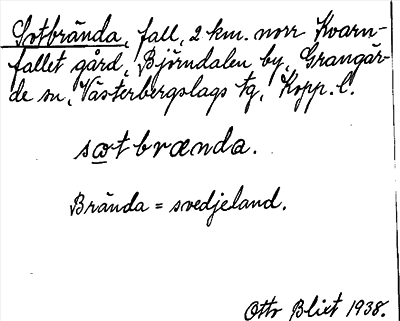 Sotbrända, fall, 2 km. norr Kvarn-
fallet gård, Björndalen by, Grangär-
de sn, Västerbergslags tg, Kopp. l.
sotbrænda.
Brända = svedjeland.
Otto Blixt 1938.